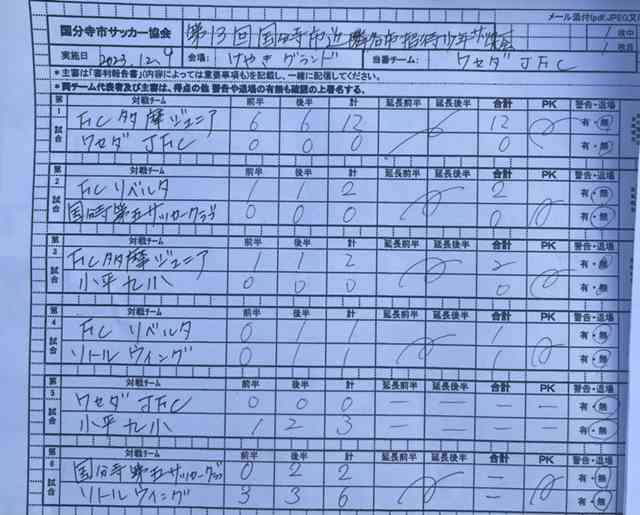 メール添付(pdf,JPEG又
国分寺市サッカー協会 第13回国分寺市近隣各市招待少年サッカー大会 1 枚中
実施日 2023.12.9 会場: けやきグランド 当番チーム: ワセダJFC 1 枚目
*主審は「審判報告書」(内容によっては重要事項も)を記載し、一緒に配信してください。
*両チーム代表者及び主審は、得点の他 警告や退場の有無も確認の上署名する。
第1試合 対戦チーム 前半 後半 計 延長前半 延長後半 合計 PK 警告・退場
FC多摩ジュニア 6 6 12 12 有・無
ワセダ JFC 0 0 0 0 有・無
第2試合 対戦チーム 前半 後半 計 延長前半 延長後半 合計 PK 警告・退場
FC リベルタ 1 1 2 2 有・無
国分寺第五サッカークラブ 0 0 0 0 有・無
第3試合 対戦チーム 前半 後半 計 延長前半 延長後半 合計 PK 警告・退場
FC多摩ジュニア 1 1 2 2 有・無
小平九小 0 0 0 0 有・無
第4試合 対戦チーム 前半 後半 計 延長前半 延長後半 合計 PK 警告・退場
FC リベルタ 0 1 1 1 有・無
リトルウィング 0 1 1 1 有・無
第5試合 対戦チーム 前半 後半 計 延長前半 延長後半 合計 PK 警告・退場
ワセダ JFC 0 0 0 — — — — 有・無
小平九小 1 2 3 — — — — 有・無
第6試合 対戦チーム 前半 後半 計 延長前半 延長後半 合計 PK 警告・退場
国分寺第五サッカークラブ 0 2 2 — 有・無
リトルウィング 3 3 6 — 有・無